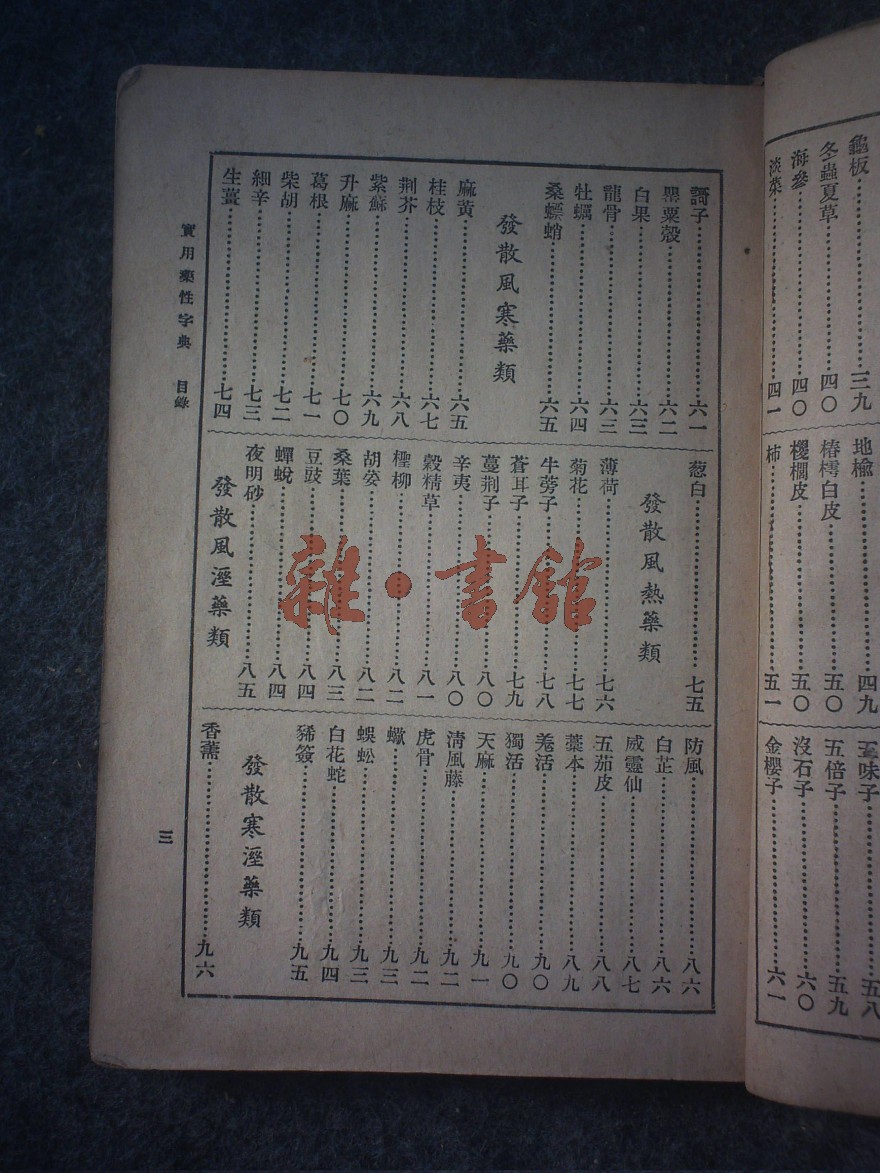 龜板 三九
冬蟲夏草 四〇
海參 四〇
淡菜 四一
地榆 四九
椿樗白皮 五〇
椶櫚皮 五〇
柿 五一
五味子 五八
五倍子 五九
沒石子 六〇
金櫻子 六一
訶子 六一
罌粟殼 六二
白果 六三
龍骨 六三
牡蠣 六四
桑螵蛸 六五
發散風寒藥類
麻黃 六五
桂枝 六七
荆芥 六八
紫蘇 六九
升麻 七〇
葛根 七一
柴胡 七二
細辛 七三
生薑 七四
葱白 七五
發散風熱藥類
薄荷 七六
菊花 七七
牛蒡子 七八
蒼耳子 七九
蔓荆子 八〇
辛夷 八〇
穀精草 八一
檉柳 八二
胡荽 八二
桑葉 八三
豆豉 八四
蟬蛻 八四
夜明砂 八五
發散風溼藥類
防風 八六
白芷 八六
威靈仙 八七
五茄皮 八八
藁本 八九
羗活 九〇
獨活 九〇
天麻 九一
淸風藤 九二
虎骨 九二
蠍 九三
蜈蚣 九三
白花蛇 九四
豨簽 九五
發散寒溼藥類
香薷 九六
實用藥性字典 目錄
三
雜·書館